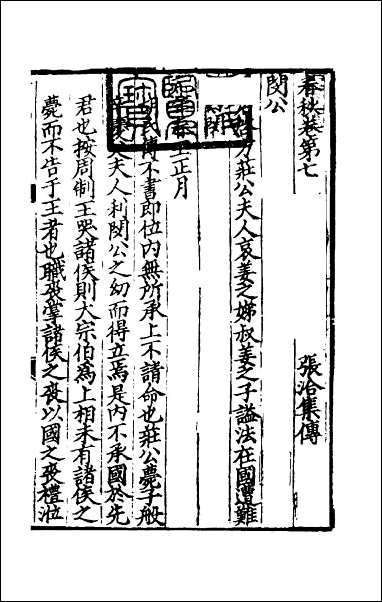 春秋卷第七 張洽集傳
閔公
莊公夫人哀姜之娣叔姜之子謚法在國遭難
王正月
氏傳不書即位内無所承上不請命也莊公薨子般
夫人利閔公之幼而得立焉是内不承國於先
君也按周制王哭諸侯則大宗伯為上相未有諸侯之
薨而不告于王者也職喪掌諸侯之喪以國之喪禮涖